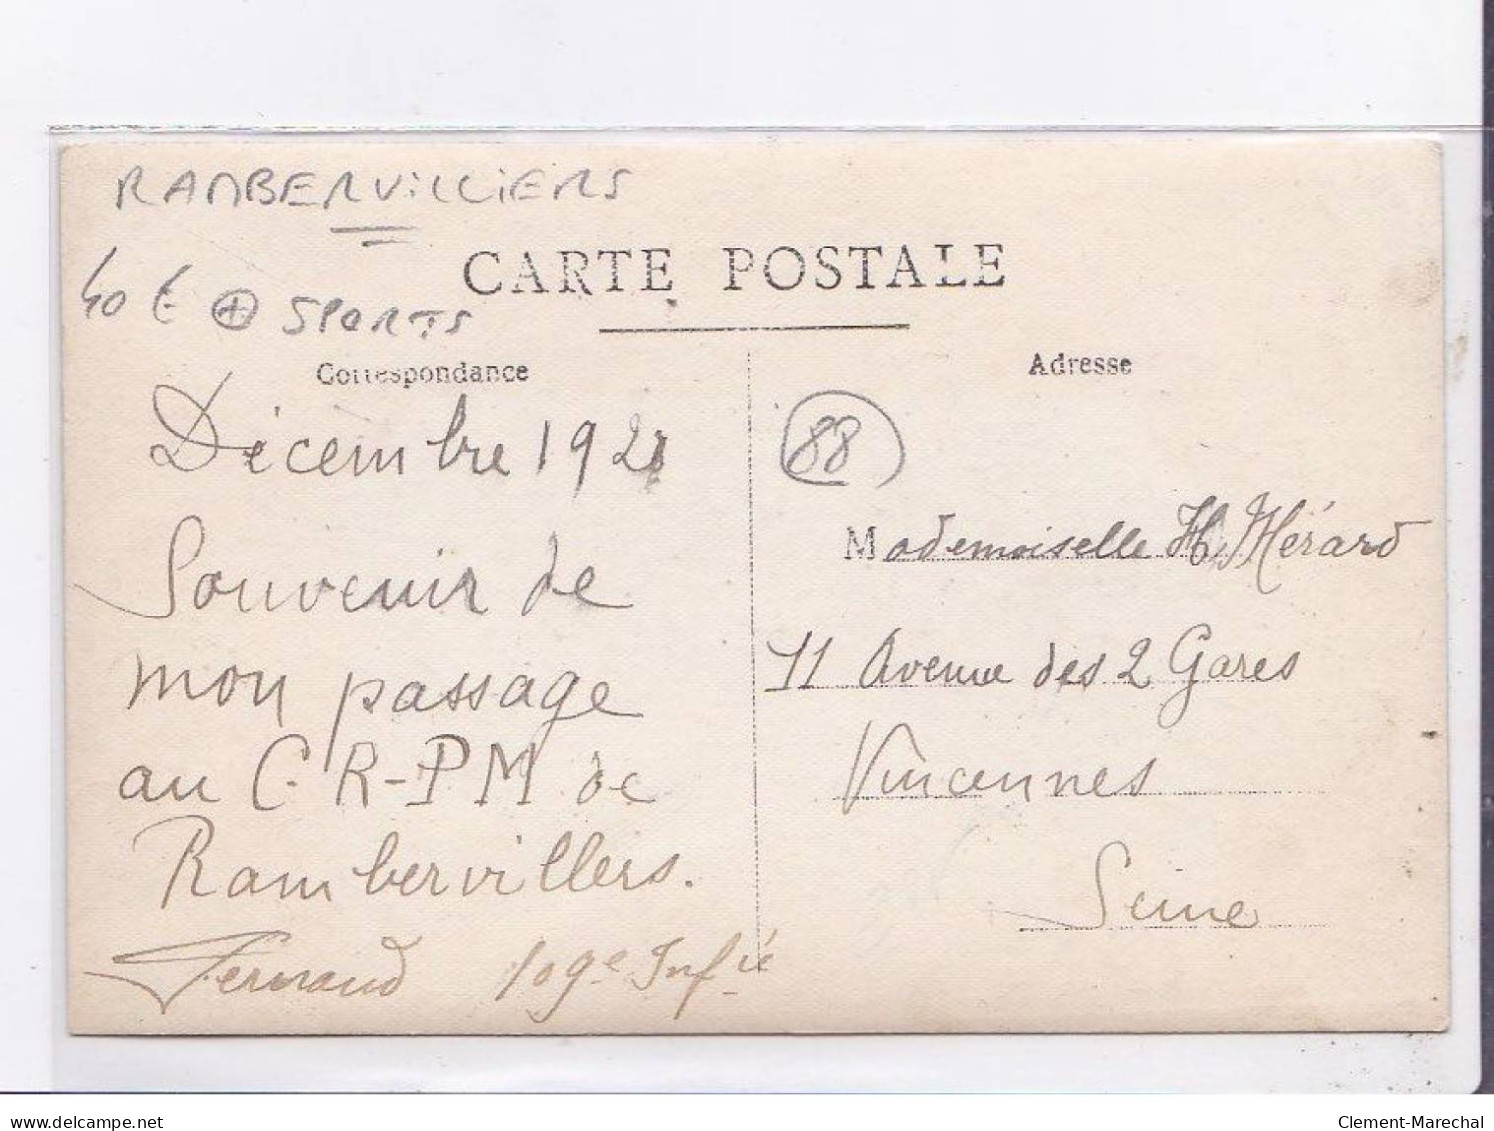 RAMBERVILLIERS
40 € + SPORTS
CARTE POSTALE
Correspondance
Décembre 1921
Souvenir de
mon passage
au C.R-PM de
Rambervillers.
Fernand 109e Inf ie
Adresse
88
Mademoiselle H. Mérard
11 Avenue des 2 Gares
Vincennes
Seine
delcampe.net
Clement-Marechal